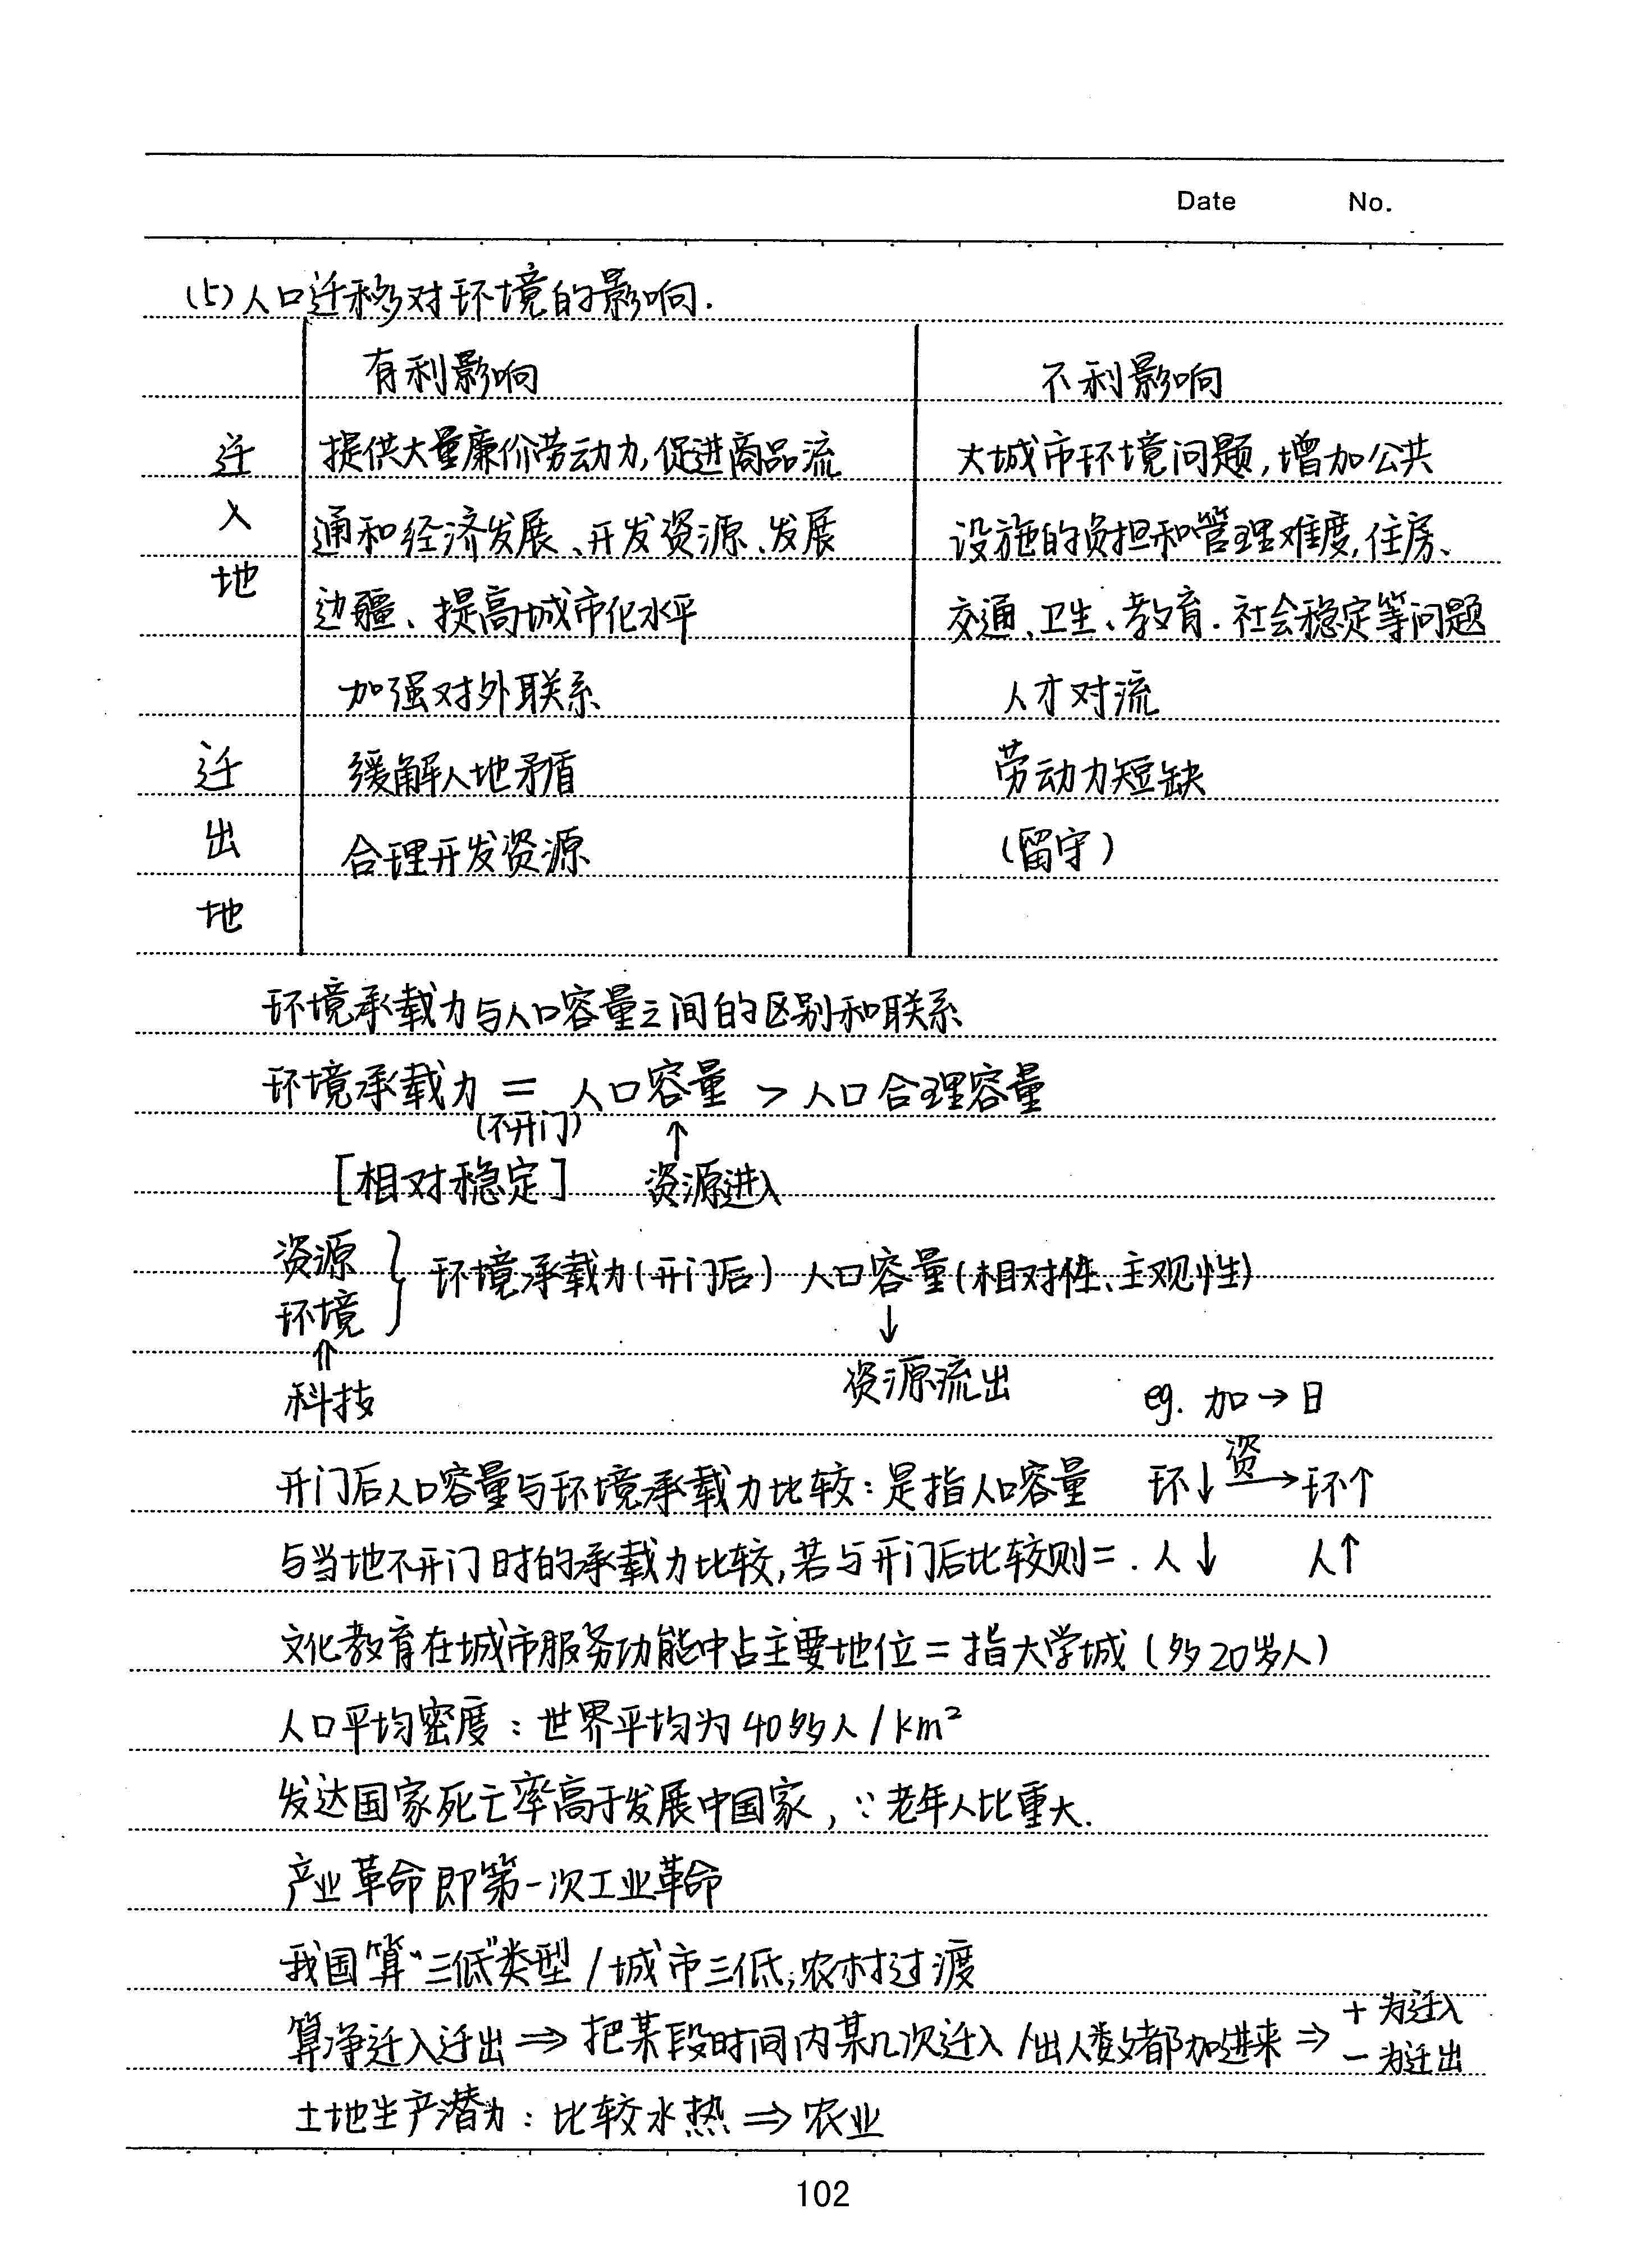 Date No.
(5)人口迁移对环境的影响.
有利影响 不利影响
迁入地
提供大量廉价劳动力,促进商品流 大城市环境问题,增加公共
通和经济发展、开发资源、发展 设施的负担和管理难度,住房、
边疆、提高城市化水平 交通、卫生、教育.社会稳定等问题
加强对外联系 人才对流
迁出地
缓解人地矛盾 劳动力短缺
合理开发资源 (留守)
环境承载力与人口容量之间的区别和联系
环境承载力 = 人口容量 > 人口合理容量
(不开门) ↑
[相对稳定] 资源进入
资源
环境 } 环境承载力(开门后) 人口容量(相对性、主观性)
⇑ ↓
科技 资源流出 eg. 加→日
开门后人口容量与环境承载力比较:是指人口容量 环↓ 资→ 环↑
与当地不开门时的承载力比较,若与开门后比较则=. 人↓ 人↑
文化教育在城市服务功能中占主要地位=指大学城(多20岁人)
人口平均密度:世界平均为40多人/km²
发达国家死亡率高于发展中国家,∵老年人比重大.
产业革命即第一次工业革命
我国算“三低”类型/城市三低;农村过渡
算净迁入迁出⇒把某段时间内某几次迁入/出人数都加进来⇒ + 为迁入
- 为迁出
土地生产潜力:比较水热⇒农业
102